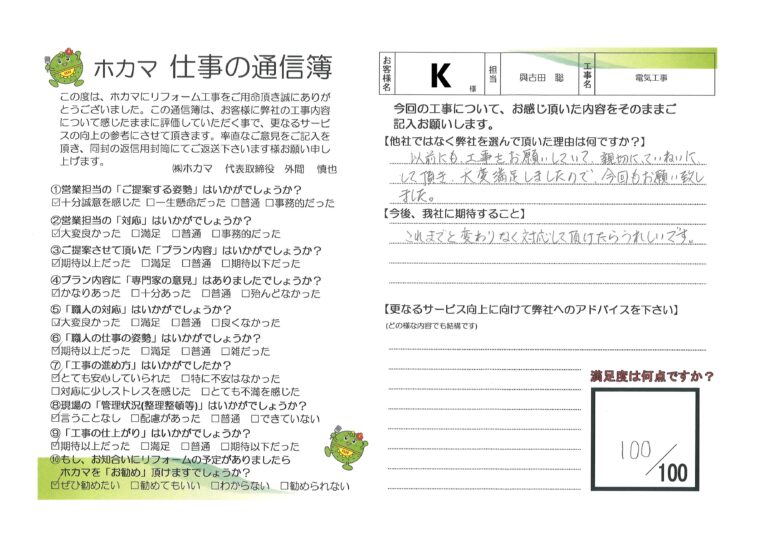 ホカマ 仕事の通信簿
この度は、ホカマにリフォーム工事をご用命頂き誠にありが
とうございました。この通信簿は、お客様に弊社の工事内容
について感じたままに評価していただく事で、更なるサービ
スの向上の参考にさせて頂きます。率直なご意見をご記入を
頂き、同封の返信用封筒にてご返送下さいます様お願い申し
上げます。
㈱ホカマ 代表取締役 外間 慎也
①営業担当の「ご提案する姿勢」はいかがでしょうか?
☑十分誠意を感じた □一生懸命だった □普通 □事務的だった
②営業担当の「対応」はいかがでしょうか?
☑大変良かった □満足 □普通 □事務的だった
③ご提案させて頂いた「プラン内容」はいかがでしょうか?
☑期待以上だった □満足 □普通 □期待以下だった
④プラン内容に「専門家の意見」はありましたでしょうか?
☑かなりあった □十分あった □普通 □殆んどなかった
⑤「職人の対応」はいかがでしょうか?
☑大変良かった □満足 □普通 □良くなかった
⑥「職人の仕事の姿勢」はいかがでしょうか?
☑期待以上だった □満足 □普通 □雑だった
⑦「工事の進め方」はいかがでしたか?
☑とても安心していられた □特に不安はなかった
□対応に少しストレスを感じた □とても不満を感じた
⑧現場の「管理状況(整理整頓等)」はいかがでしょうか?
☑言うことなし □配慮があった □普通 □できていない
⑨「工事の仕上がり」はいかがでしょうか?
☑期待以上だった □満足 □普通 □期待以下だった
⑩もし、お知合いにリフォームの予定がありましたら
ホカマを「お勧め」頂けますでしょうか?
☑ぜひ勧めたい □勧めてもいい □わからない □勧められない
お客様名 K 様 担当 與古田 聡 工事名 電気工事
今回の工事について、お感じ頂いた内容をそのままご
記入お願いします。
【他社ではなく弊社を選んで頂いた理由は何ですか?】
以前にも、工事をお願いしていて、親切にていねいに
して頂き、大変満足しましたので、今回もお願い致し
ました。
【今後、我社に期待すること】
これまでと変わりなく対応して頂けたらうれしいです。
【更なるサービス向上に向けて弊社へのアドバイスを下さい】
(どの様な内容でも結構です)
満足度は何点ですか?
100/100